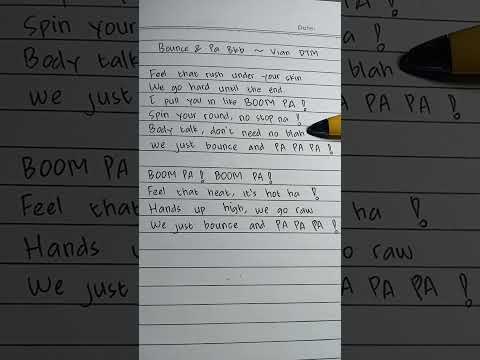 Date:
Bounce & Pa Bkb ~ Vian DTM
Feel that rush under your skin
We go hard until the end.
I pull you in like BOOM PA !
Spin your round, no stop na !
Body talk, don't need no blah
We just bounce and PA PA PA !
BOOM PA ! BOOM PA !
Feel that heat, it's hot ha !
Hands up high, we go raw
We just bounce and PA PA PA !